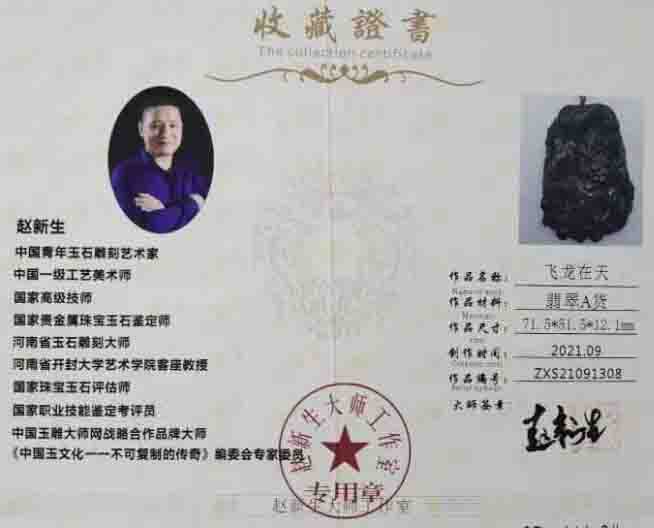 收藏證書
The collection certificate
赵新生
中国青年玉石雕刻艺术家
中国一级工艺美术师
国家高级技师
国家贵金属珠宝玉石鉴定师
河南省玉石雕刻大师
河南省开封大学艺术学院客座教授
国家珠宝玉石评估师
国家职业技能鉴定考评员
中国玉雕大师网战略合作品牌大师
《中国玉文化一一不可复制的传奇》编委会专家委员
作品名称: 飞龙在天
作品材料: 翡翠A货
作品尺寸: 71.5*51.5*12.1mm
创作时间: 2021.09
作品编号: ZXS21091308
大师签章:
赵新生
赵新生大师工作室
专用章
赵新生大师工作室